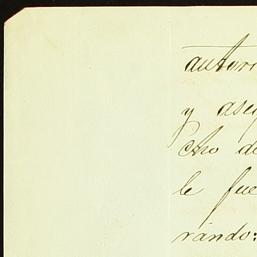 autori
y aseg
cho de
le fue
rando: